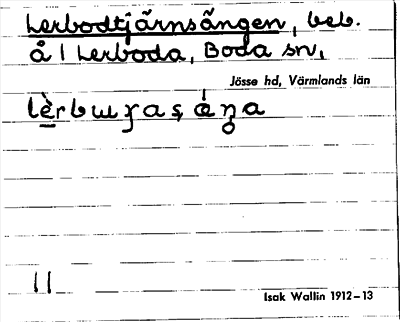 Lerbodtjärnsängen, beb.
å l Lerboda, Boda sn,
Jösse hd, Värmlands län
11
Isak Wallin 1912–13